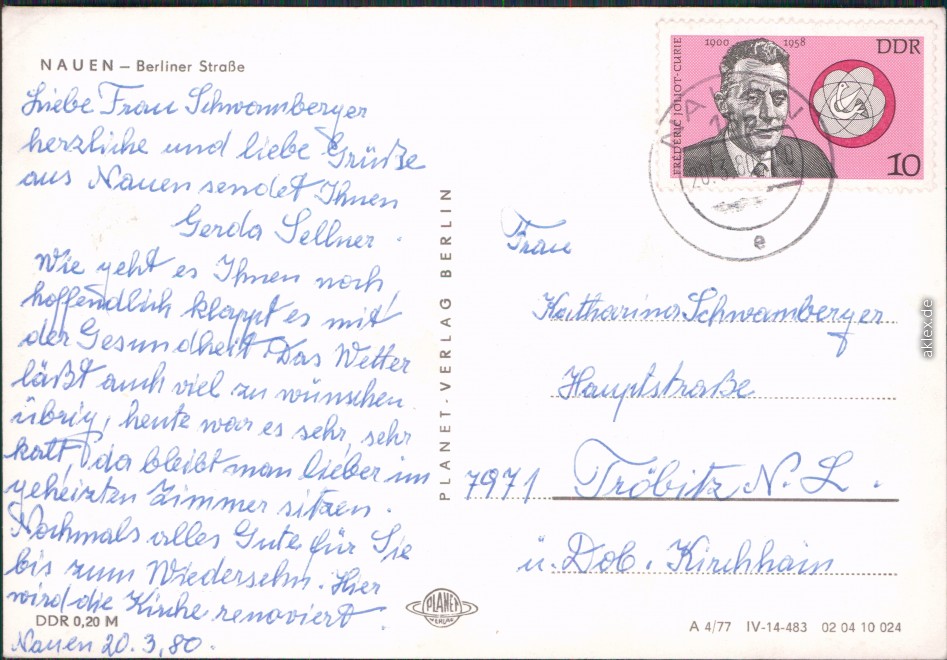 NAUEN – Berliner Straße
Liebe Frau Schwamberger
herzliche und liebe Grüße
aus Nauen sendet Ihnen
Gerda Sellner.
Wie geht es Ihnen noch,
hoffendlich klappt es mit
der Gesundheit. Das Wetter
läßt auch viel zu wünschen
übrig, heute war es sehr, sehr
kalt, da bleibt man lieber im
geheizten Zimmer sitzen.
Nochmals alles Gute für Sie
bis zum Wiedersehn. Hier
wird die Kirche renoviert
DDR 0,20 M
Nauen 20.3.80.
PLANET-VERLAG BERLIN
PLANET
VERLAG
FRÉDÉRIC JOLIOT-CURIE
1900 1958
DDR
10
NAUEN
20.3.80
e
Frau
Katharina Schwamberger
Hauptstraße
7971 Tröbitz N.L.
ü. Dob. Kirchhain
A 4/77 IV-14-483 02 04 10 024
aklex.de